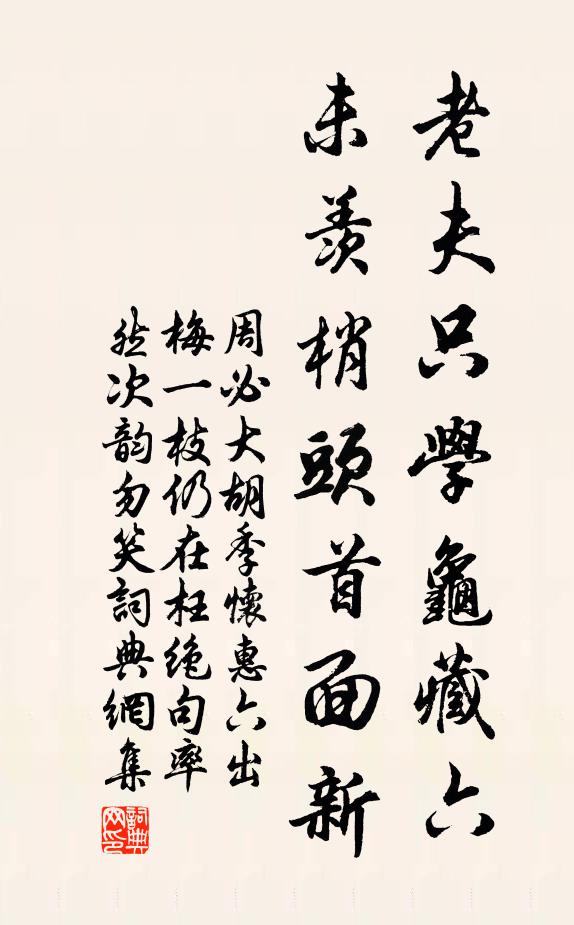 老夫只學龜藏六
未羨梢頭首面新
周必大胡季懷惠六出
梅一枝仍在枉绝句率
然次韵勿笑詞典網集
詞典網印